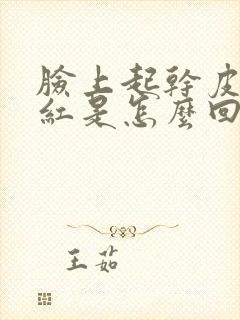 臉上起幹皮
紅是怎麼回
王茹